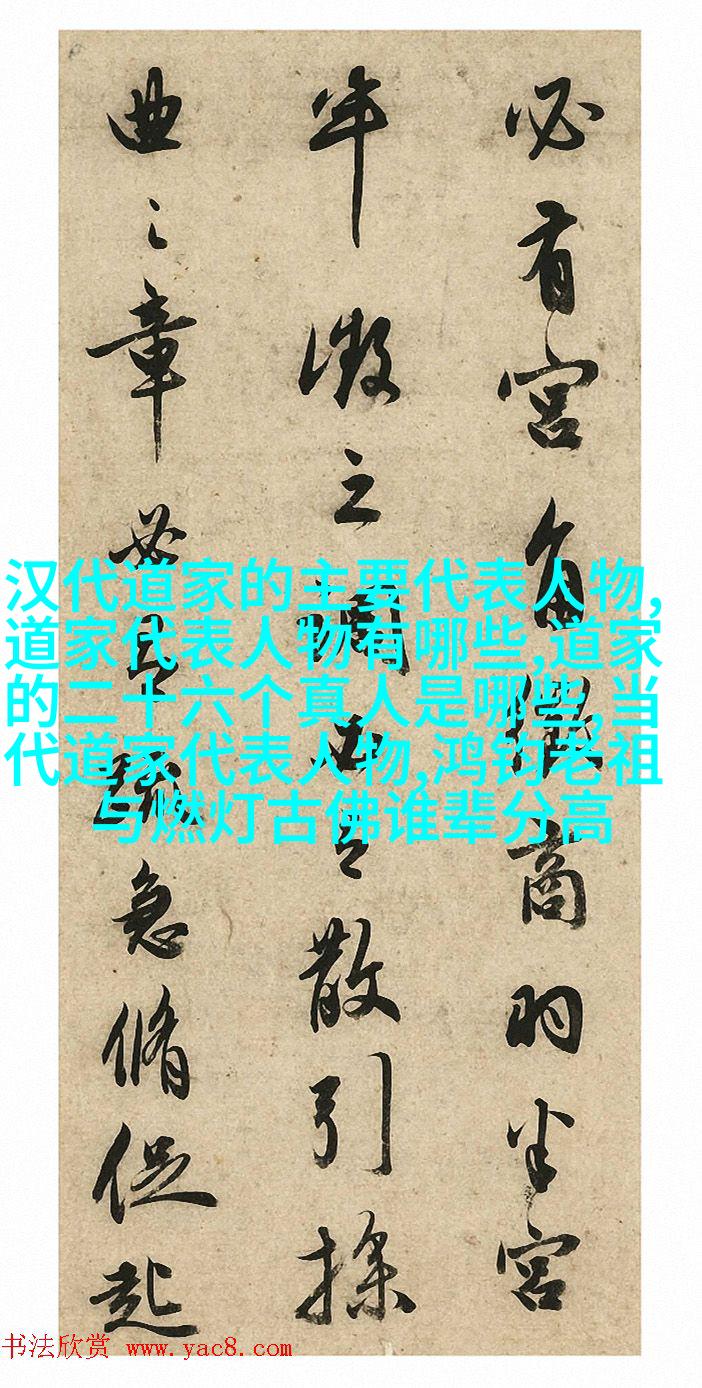 必有宫角徵商羽半宫
半徵之調必有散引操
曲之章必有急脩促起
汉代道家的主要代表人物,
道家代表人物有哪些,道家
的二十六个真人是哪些,当
代道家代表人物,鸿钧老祖
与燃灯古佛谁辈分高
书法欣赏 www.yac8.com